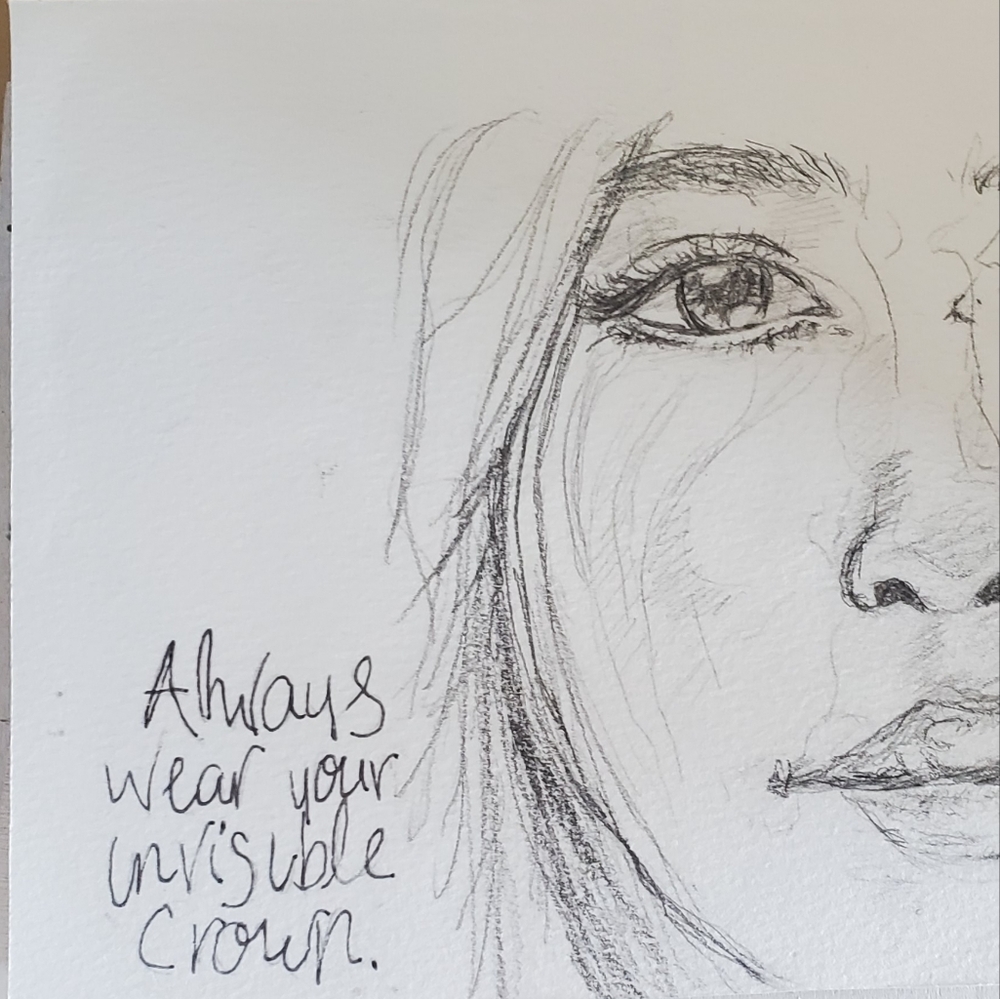 Always
wear your
invisible
Crown.